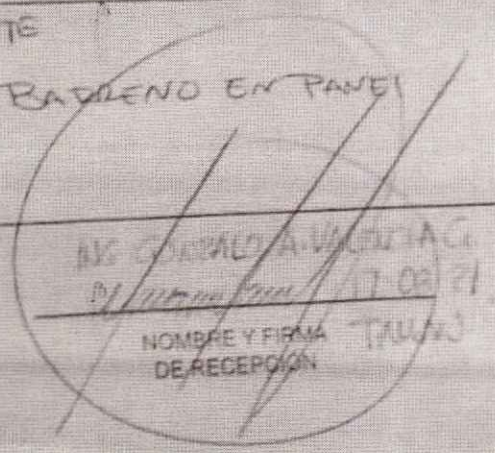 TE
BARRENO EN PANEL
ING GONZALO A. VALENCIA G.
17-08-21
NOMBRE Y FIRMA
DE RECEPCIÓN